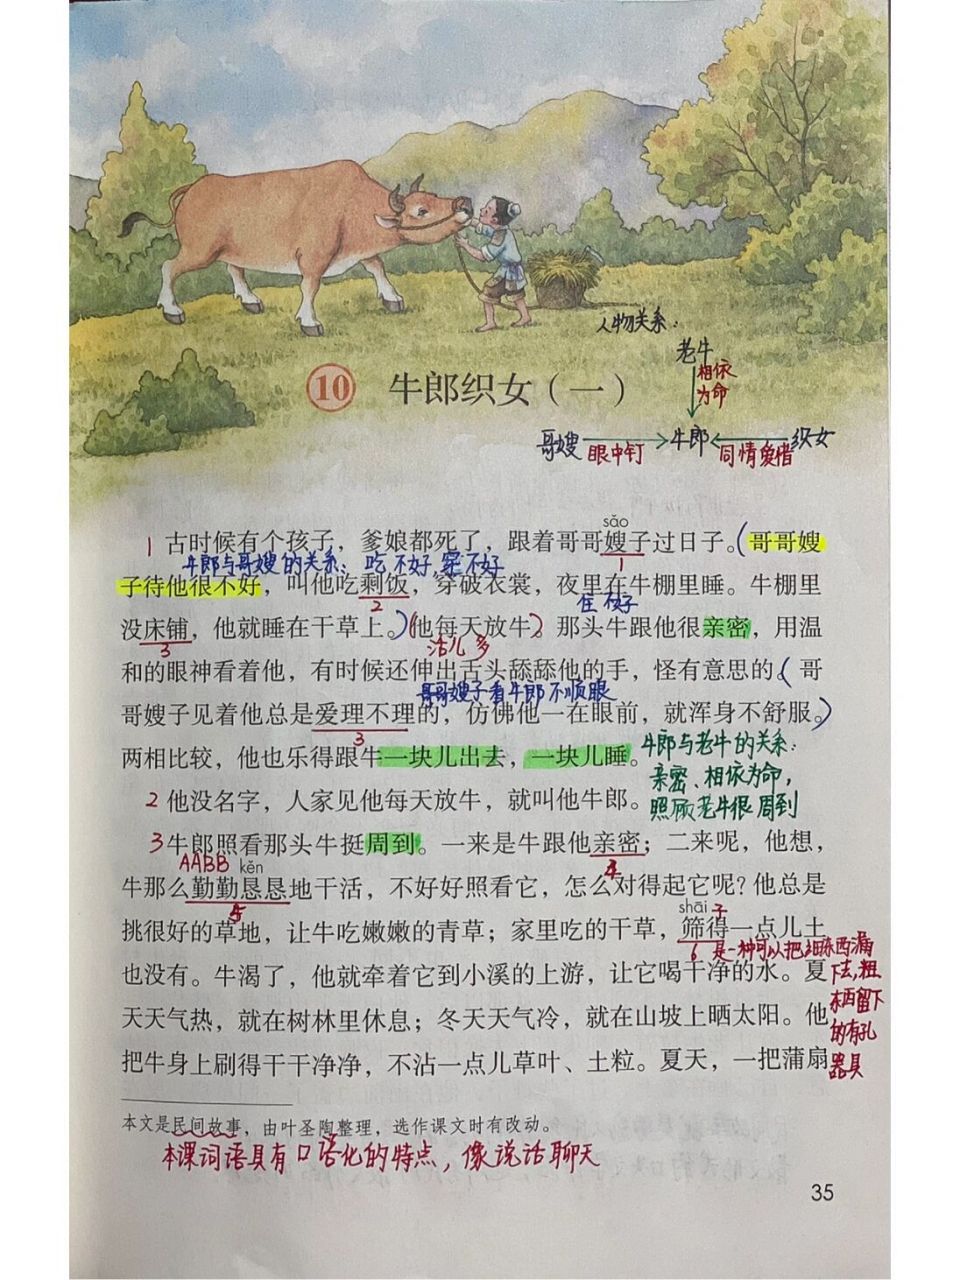 人物关系：
老牛
相依
为命
10 牛郎织女（一）
哥嫂 眼中钉 牛郎 同情爱惜 织女
sǎo
1 古时候有个孩子，爹娘都死了，跟着哥哥嫂子过日子。（哥哥嫂
1
牛郎与哥嫂的关系：吃不好，穿不好
子待他很不好，叫他吃剩饭，穿破衣裳，夜里在牛棚里睡。牛棚里
2 住不好
没床铺，他就睡在干草上。）（他每天放牛）。那头牛跟他很亲密，用温
3 活儿多
和的眼神看着他，有时候还伸出舌头舔舔他的手，怪有意思的。（哥
哥哥嫂子看牛郎不顺眼
哥嫂子见着他总是爱理不理的，仿佛他一在眼前，就浑身不舒服。）
3
两相比较，他也乐得跟牛一块儿出去，一块儿睡。
牛郎与老牛的关系：
亲密、相依为命，
照顾老牛很周到
2 他没名字，人家见他每天放牛，就叫他牛郎。
3 牛郎照看那头牛挺周到。一来是牛跟他亲密；二来呢，他想，
AABB kěn 4
牛那么勤勤恳恳地干活，不好好照看它，怎么对得起它呢？他总是
5 shāi 子
挑很好的草地，让牛吃嫩嫩的青草；家里吃的干草，筛得一点儿土
6 是一种可以把细东西漏
下去，粗
东西留下
的有孔
器具
也没有。牛渴了，他就牵着它到小溪的上游，让它喝干净的水。夏
天天气热，就在树林里休息；冬天天气冷，就在山坡上晒太阳。他
把牛身上刷得干干净净，不沾一点儿草叶、土粒。夏天，一把蒲扇
本文是民间故事，由叶圣陶整理，选作课文时有改动。
本课词语具有口语化的特点，像说话聊天
35